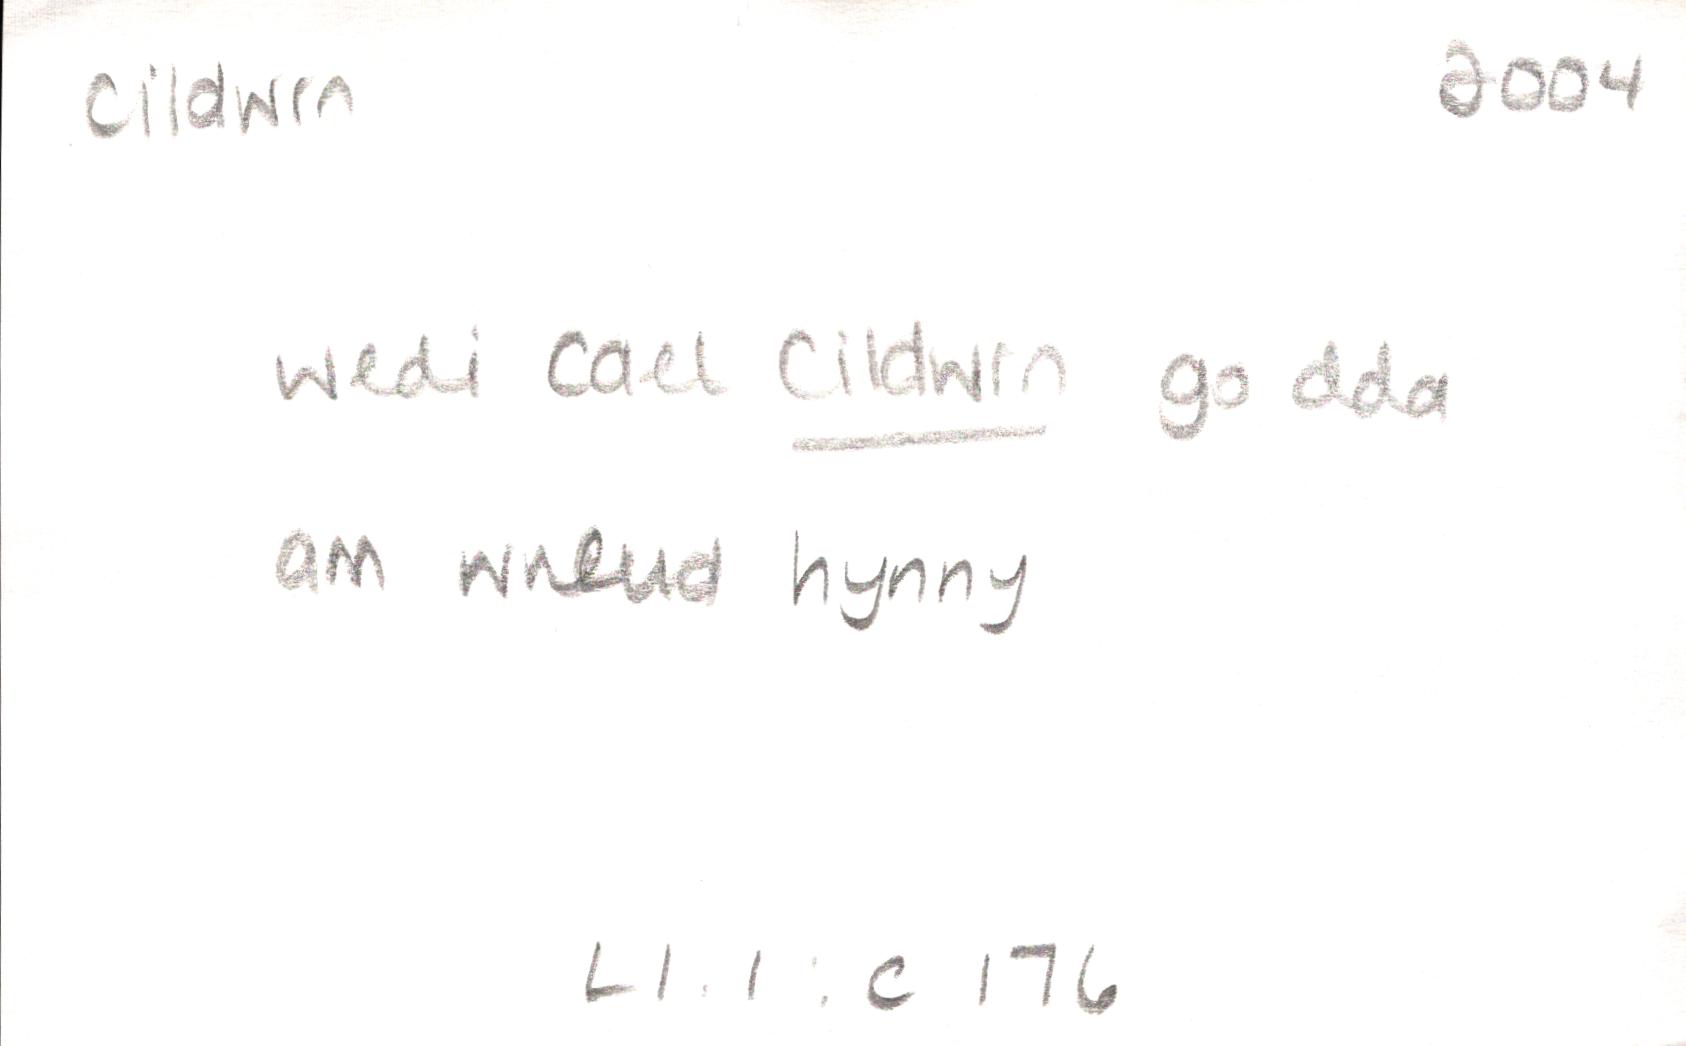 Cildwrn 2004
wedi cael cildwrn go dda
am wneud hynny
Ll.1 : c 176